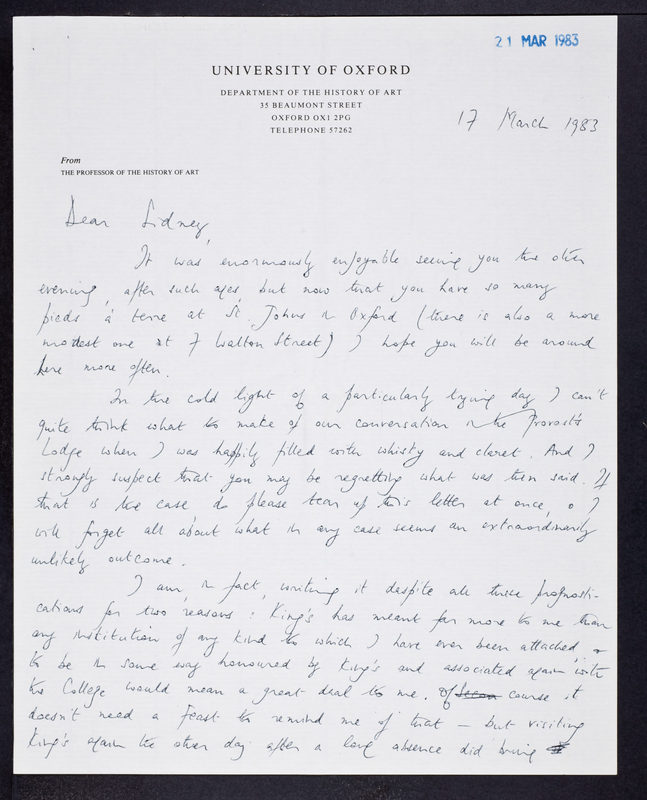 21 MAR 1983
UNIVERSITY OF OXFORD
DEPARTMENT OF THE HISTORY OF ART
35 BEAUMONT STREET
OXFORD OX1 2PG
TELEPHONE 57262
17 March 1983
From
THE PROFESSOR OF THE HISTORY OF ART
Dear Sidney,
It was enormously enjoyable seeing you the other
evening, after such ages, but now that you have so many
pieds à terre at St. Johns in Oxford (there is also a more
modest one at 7 Walton Street) I hope you will be around
here more often.
In the cold light of a particularly trying day I can't
quite think what to make of our conversation in the Provost's
Lodge when I was happily filled with whisky and claret. And I
strongly suspect that you may be regretting what was then said. If
that is the case do please tear up this letter at once, & I
will forget all about what in any case seems an extraordinarily
unlikely outcome.
I am, in fact, writing it despite all these prognosti-
cations for two reasons: King's has meant far more to me than
any institution of any kind to which I have ever been attached &
to be in some way honoured by King's and associated again with
the College would mean a great deal to me. Of course it
doesn't need a Feast to remind me of that – but visiting
King's again the other day after a long absence did bring